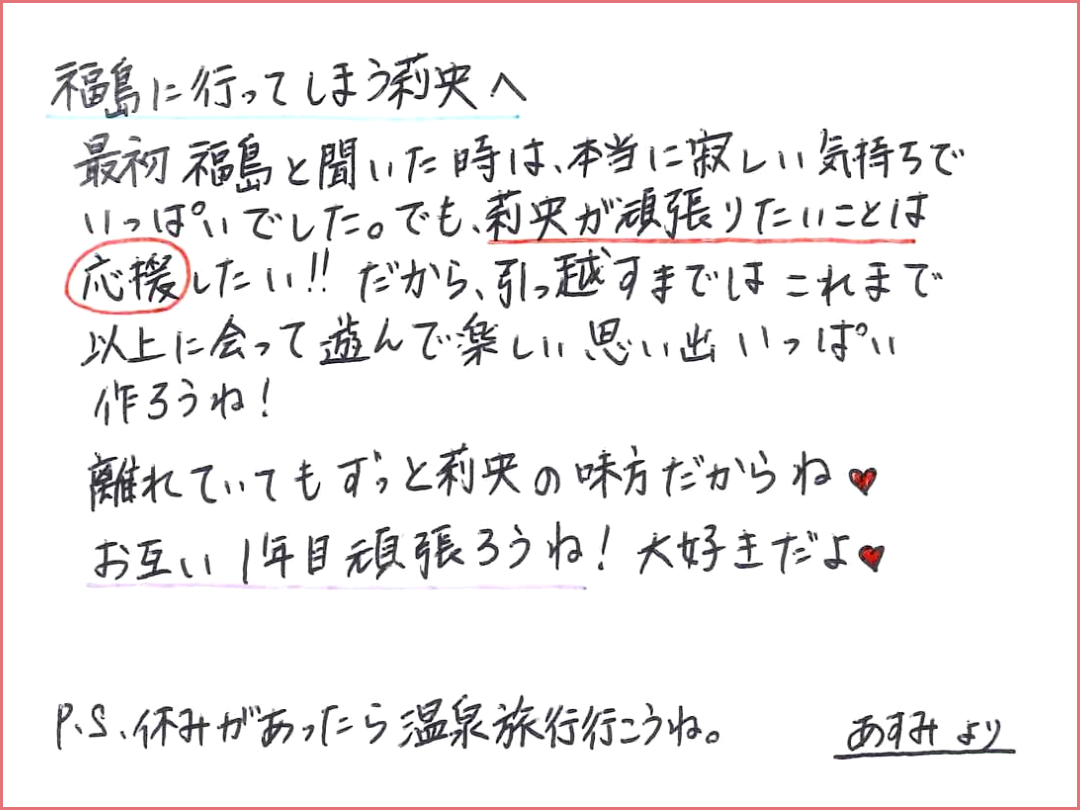 福島に行ってしまう莉央へ
最初福島と聞いた時は、本当に寂しい気持ちで
いっぱいでした。でも、莉央が頑張りたいことは
応援したい!! だから、引っ越すまではこれまで
以上に会って遊んで楽しい思い出いっぱい
作ろうね!
離れていてもずっと莉央の味方だからね♥
お互い1年目頑張ろうね! 大好きだよ♥
P.S.休みがあったら温泉旅行行こうね。
あすみより